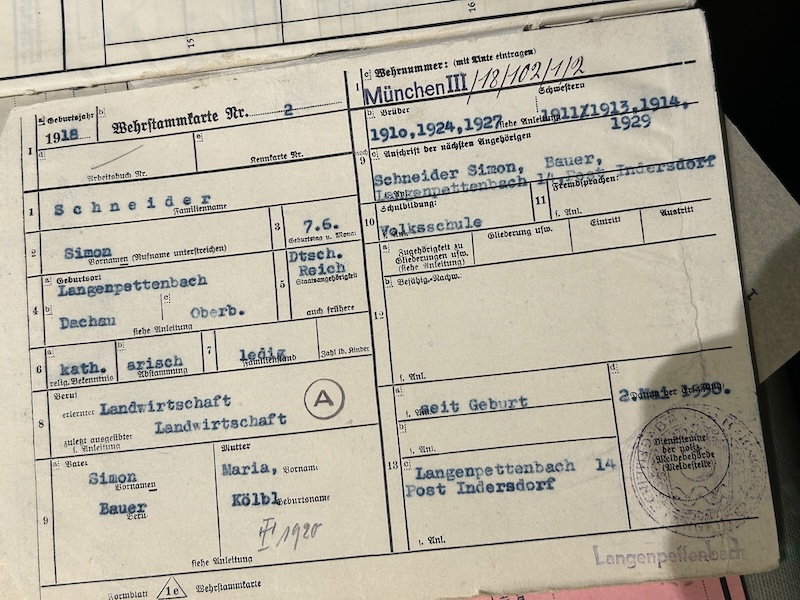 15
16
a Geburtsjahr
1918
b
Wehrstammkarte Nr. 2
1
d
Arbeitsbuch Nr.
e
Kennkarte Nr.
1
Schneider
Familienname
2
Simon
Vornamen (Rufname unterstreichen)
3
7.6.
Geburtstag u. Monat
4
a Geburtsort
Langenpettenbach
b
Dachau
c
Oberb.
siehe Anleitung
5
Dtsch.
Reich
Staatsangehörigkeit
auch frühere
6
a
kath.
relig. Bekenntnis
b
arisch
Abstammung
7
ledig
Familienstand
Zahl d. Kinder
8
Beruf
erlernter Landwirtschaft
Landwirtschaft
zuletzt ausgeübter
s. Anleitung
A
9
a Vater
Simon
Vornamen
Bauer
Beruf
Mutter
Maria, Vorname
Kölbl Geburtsname
1920
siehe Anleitung
Formblatt 1e Wehrstammkarte
1
c Wehrnummer: (mit Tinte eintragen)
München III /18/102/1/2
noch
9
b Brüder
Schwestern
1910,1924,1927
siehe Anleitung
1911/1913,1914,
1929
c Anschrift der nächsten Angehörigen
Schneider Simon, Bauer,
Langenpettenbach 14 Post Indersdorf
10
Schulbildung:
Volksschule
11
Fremdsprachen:
s. Anl.
12
a
Zugehörigkeit zu
Gliederungen usw.
(siehe Anleitung)
Gliederung usw.
Eintritt
Austritt
b Befähig.-Nachw.
s. Anl.
13
a
seit Geburt
s. Anl.
b
s. Anl.
c
Langenpettenbach 14
Post Indersdorf
s. Anl.
d
2. Mai
Dienststelle
der poliz.
Meldebehörde
(Meldestelle)
Langenpettenbach